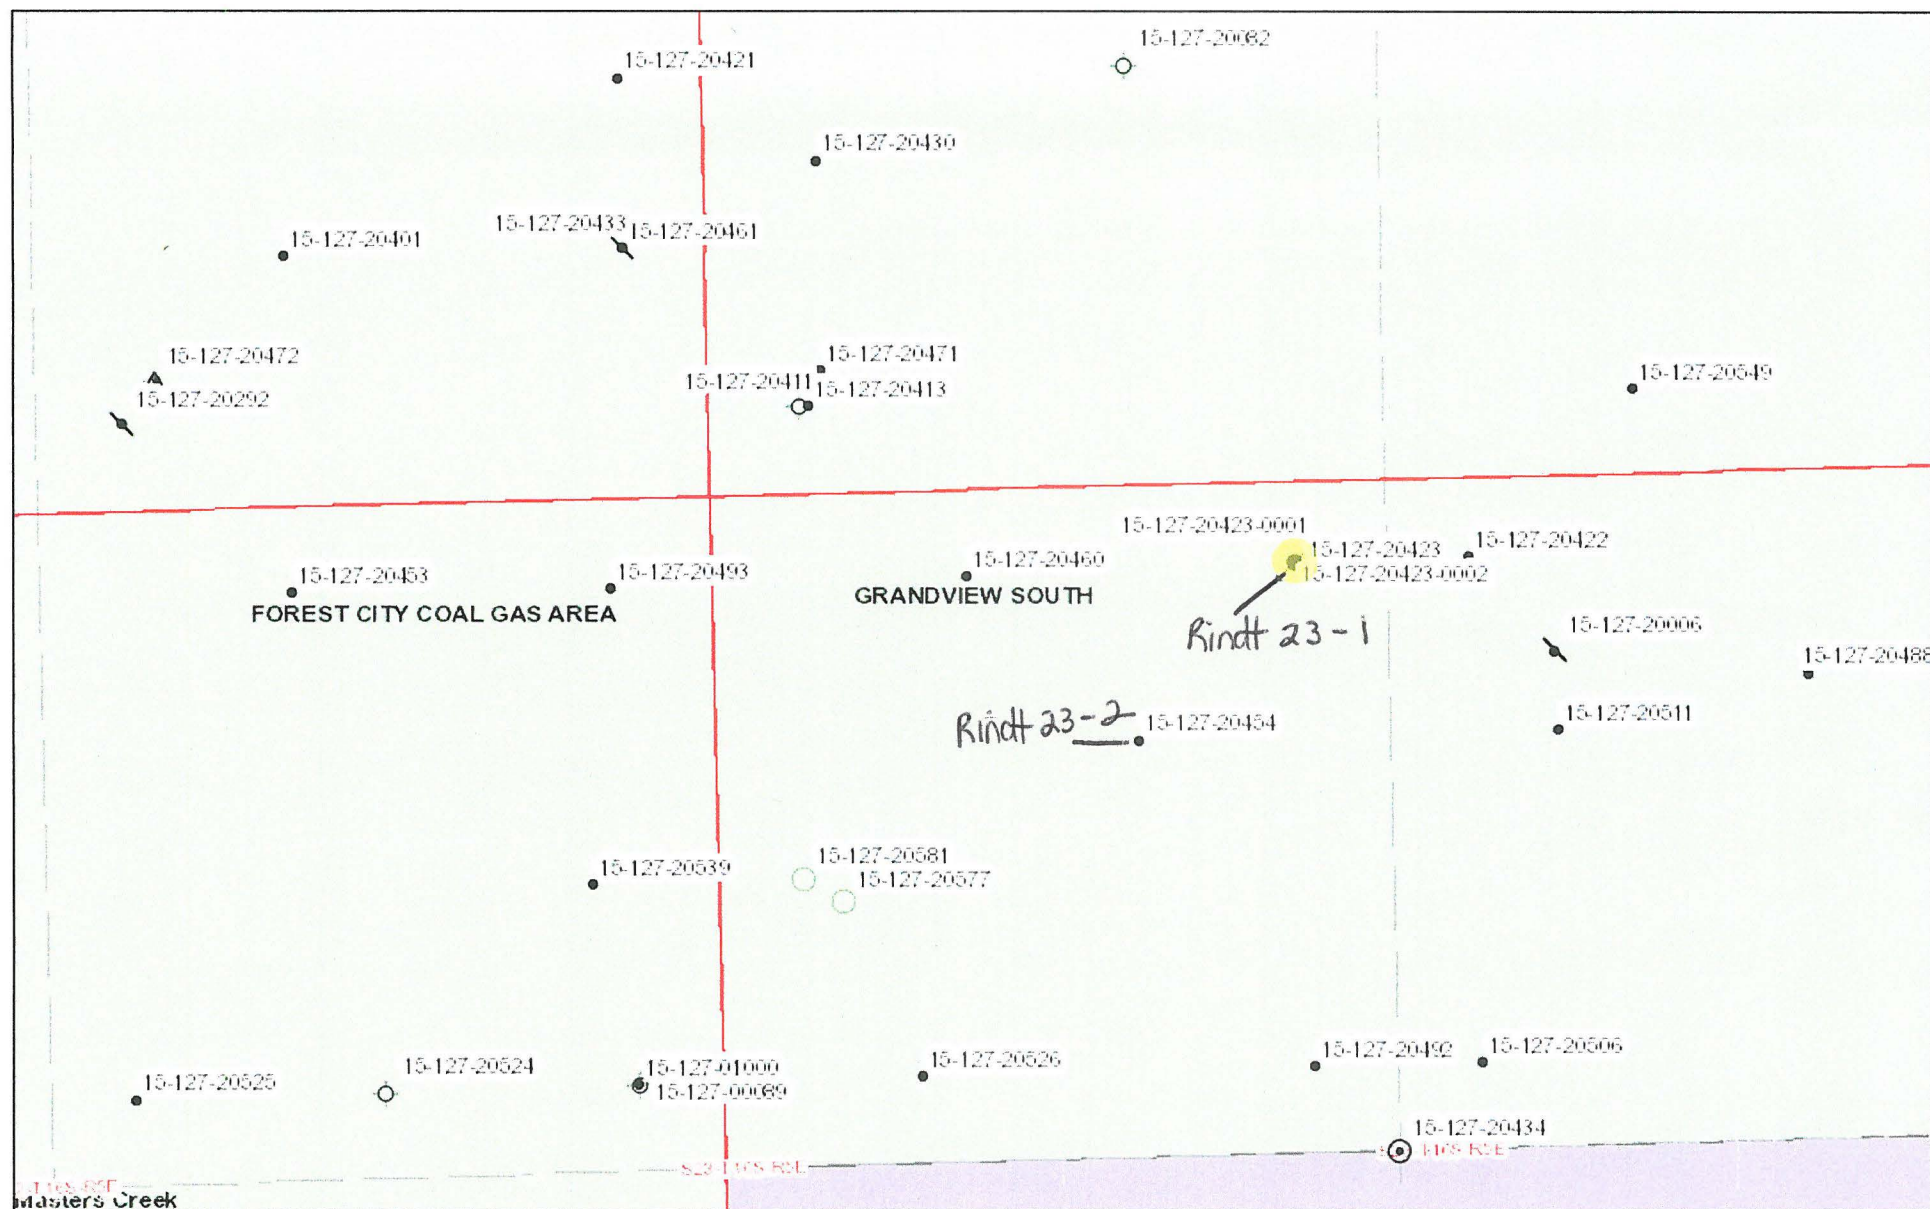 15-127-20082
15-127-20421
15-127-20430
15-127-20433
15-127-20461
15-127-20401
15-127-20472
15-127-20471
15-127-20411
15-127-20413
15-127-20292
15-127-20549
15-127-20423-0001
15-127-20423
15-127-20422
15-127-20423-0002
15-127-20453
15-127-20493
15-127-20460
FOREST CITY COAL GAS AREA
GRANDVIEW SOUTH
Rindt 23-1
15-127-20006
15-127-20488
Rindt 23-2
15-127-20454
15-127-20511
15-127-20539
15-127-20581
15-127-20577
15-127-20525
15-127-20524
15-127-01000
15-127-00089
15-127-20526
15-127-20492
15-127-20506
15-127-20434
S23-T16S-R5E
T16S-R5E
T16S-R5E
Masters Creek